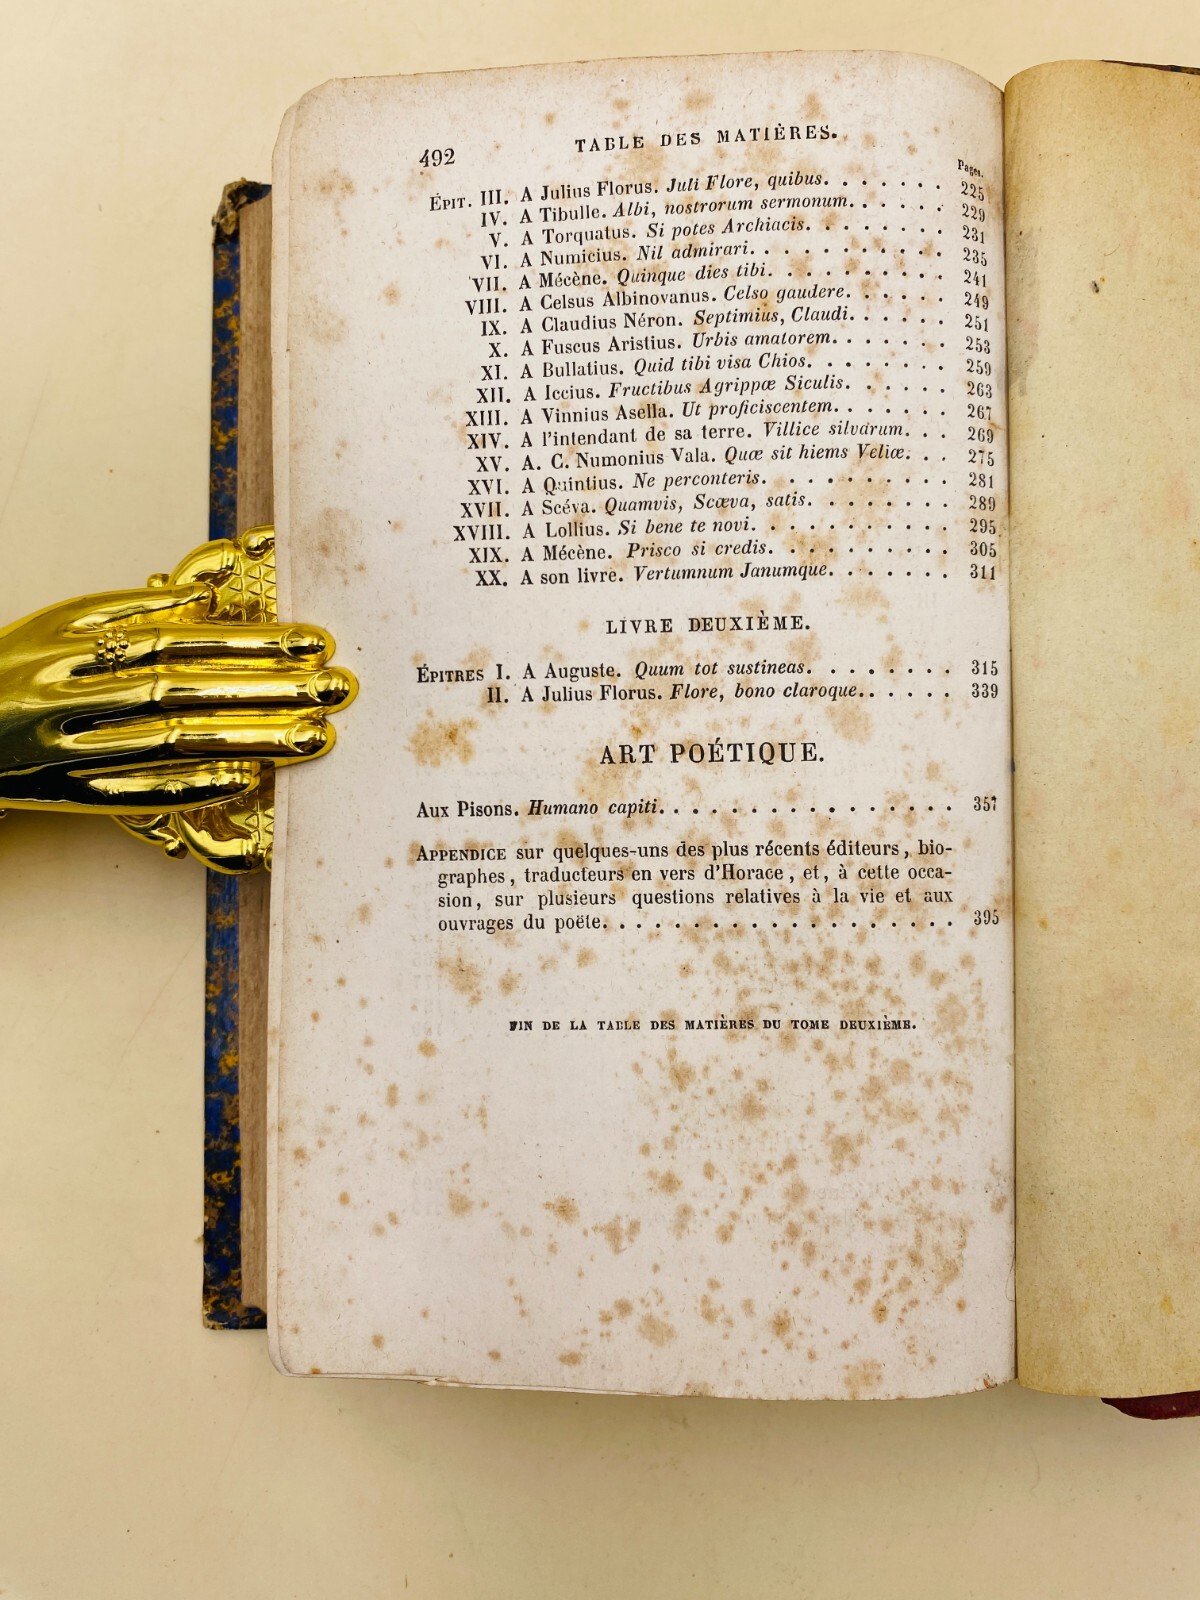 492 TABLE DES MATIÈRES.
Pages.
ÉPIT. III. A Julius Florus. Juli Flore, quibus. . . . . . . 225
IV. A Tibulle. Albi, nostrorum sermonum. . . . . . 229
V. A Torquatus. Si potes Archiacis. . . . . . . . 231
VI. A Numicius. Nil admirari. . . . . . . . . . . 235
VII. A Mécène. Quinque dies tibi. . . . . . . . . . 241
VIII. A Celsus Albinovanus. Celso gaudere. . . . . . 249
IX. A Claudius Néron. Septimius, Claudi. . . . . . 251
X. A Fuscus Aristius. Urbis amatorem. . . . . . . 253
XI. A Bullatius. Quid tibi visa Chios. . . . . . . . 259
XII. A Iccius. Fructibus Agrippæ Siculis. . . . . . 263
XIII. A Vinnius Asella. Ut proficiscentem. . . . . . . 267
XIV. A l'intendant de sa terre. Villice silvarum. . . 269
XV. A. C. Numonius Vala. Quæ sit hiems Veliæ. . . 275
XVI. A Quintius. Ne perconteris. . . . . . . . . . 281
XVII. A Scéva. Quamvis, Scæva, satis. . . . . . . . 289
XVIII. A Lollius. Si bene te novi. . . . . . . . . . 295
XIX. A Mécène. Prisco si credis. . . . . . . . . . 305
XX. A son livre. Vertumnum Janumque. . . . . . . 311
LIVRE DEUXIÈME.
ÉPITRES I. A Auguste. Quum tot sustineas. . . . . . . . 315
II. A Julius Florus. Flore, bono claroque. . . . . . 339
ART POÉTIQUE.
Aux Pisons. Humano capiti. . . . . . . . . . . . . . . . 357
APPENDICE sur quelques-uns des plus récents éditeurs, bio-
graphes, traducteurs en vers d'Horace, et, à cette occa-
sion, sur plusieurs questions relatives à la vie et aux
ouvrages du poëte. . . . . . . . . . . . . . . . . . . 395
FIN DE LA TABLE DES MATIÈRES DU TOME DEUXIÈME.